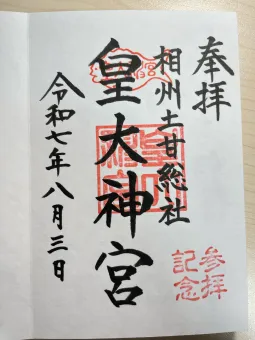 奉拝
相州土甘総社
皇大神宮
令和七年八月三日
参拝
記念